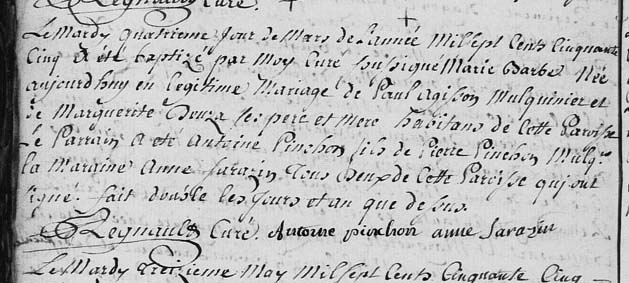 Regnault Curé.
Le Mardy quatrieme Jour de Mars de L'année Mil Sept Cents Cinquante
Cinq a été baptizé par Moy Curé Sussigné Marie Barbe Née
aujourdhuy en legitime Mariage de Paul Agisson Mulquinier et
de Marguerite Douza Ses pere et mere habitans de Cette Paroisse
Le Parrain a ete Antoine Pinchon fils de Pierre Pinchon Mulq.
la Maraine Anne Sarazin Tous deux de Cette Paroisse qui ont
signé. fait double les Jours et an que dessus.
Regnault Curé. Antoine pinchon anne Sarazin
Le Mardy treizieme May Mil Sept Cents Cinquante Cinq